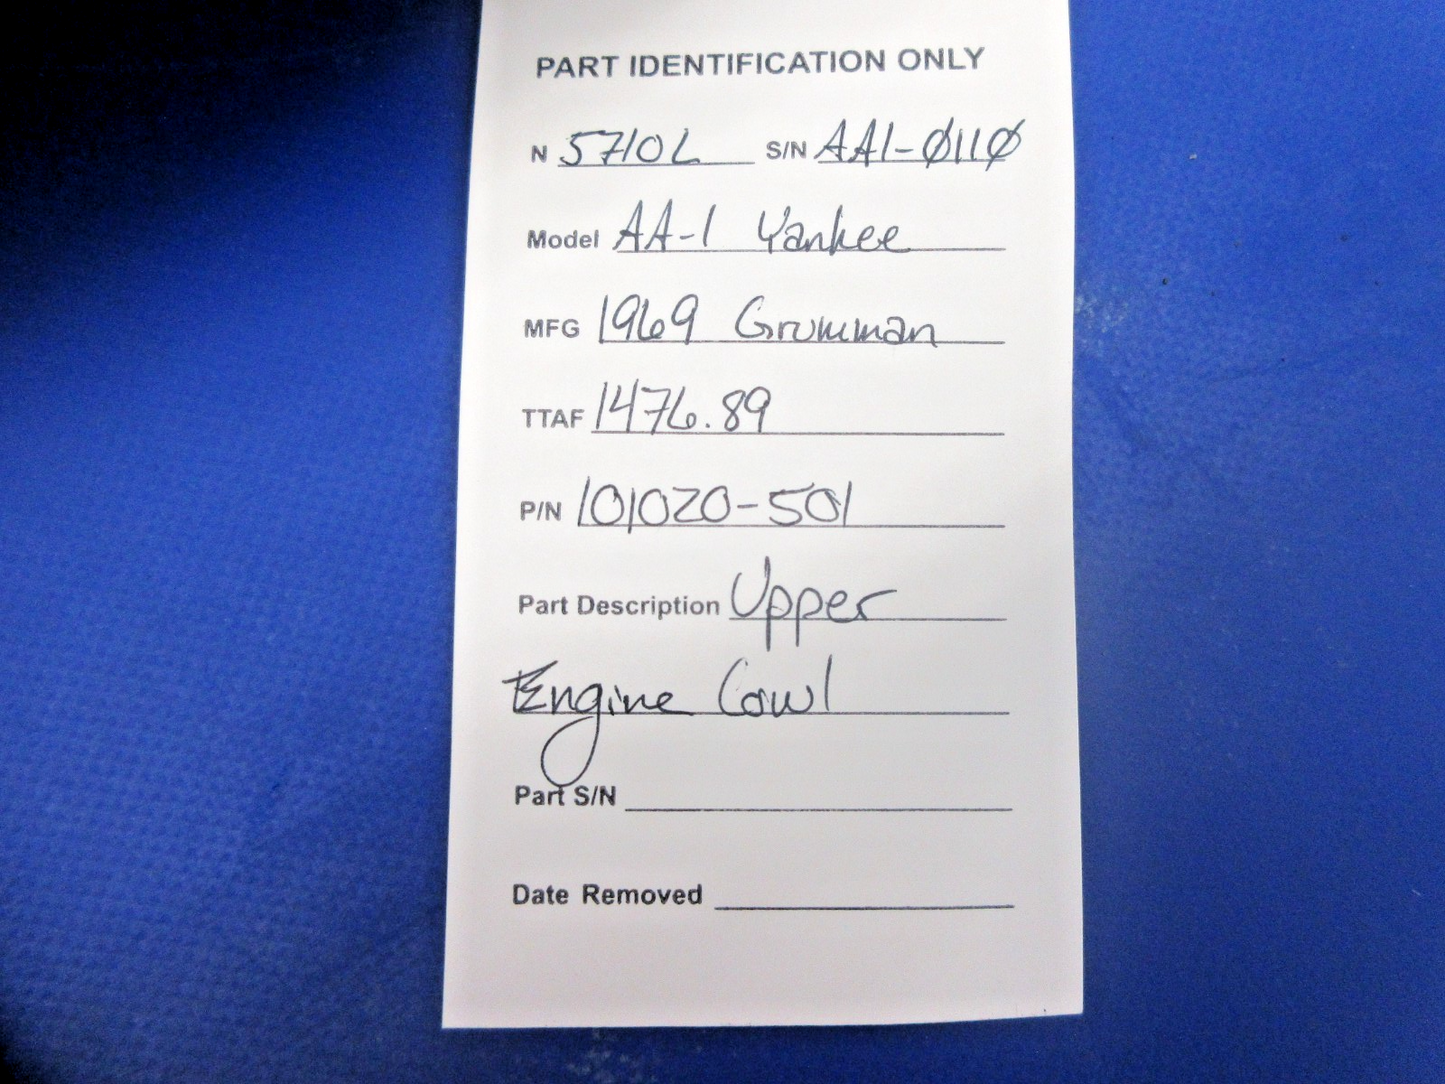 PART IDENTIFICATION ONLY
N 5710L S/N AA1-0110
Model AA-1 Yankee
MFG 1969 Grumman
TTAF 1476.89
P/N 101020-501
Part Description Upper
Engine Cowl
Part S/N
Date Removed